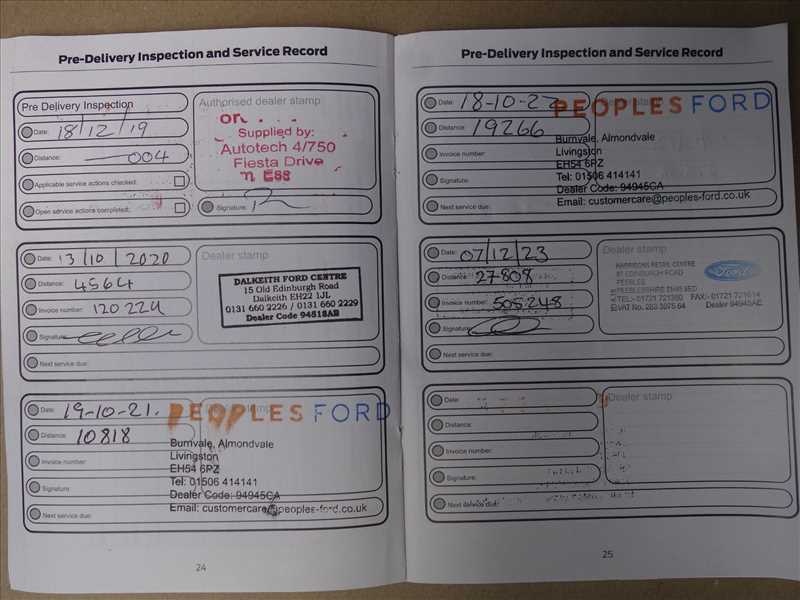 Pre-Delivery Inspection and Service Record
Pre Delivery Inspection
Date: 18/12/19
Distance: 004
Applicable service actions checked:
Open service actions completed:
Authorised dealer stamp
Supplied by:
Autotech 4/750
Fiesta Drive
Signature:
Date: 13/10/2020
Distance: 4564
Invoice number: 120224
Signature:
Next service due:
Dealer stamp
DALKEITH FORD CENTRE
15 Old Edinburgh Road
Dalkeith EH22 1JL
0131 660 2226 / 0131 660 2229
Dealer Code 94518AB
Date: 19-10-21.
Distance: 10818
Invoice number:
Signature:
Next service due:
PEOPLES FORD
Burnvale, Almondvale
Livingston
EH54 6PZ
Tel: 01506 414141
Dealer Code: 94945CA
Email: customercare@peoples-ford.co.uk
24
Pre-Delivery Inspection and Service Record
Date: 18-10-22
Distance: 19266
Invoice number:
Signature:
Next service due:
PEOPLES FORD
Burnvale, Almondvale
Livingston
EH54 6PZ
Tel: 01506 414141
Dealer Code: 94945CA
Email: customercare@peoples-ford.co.uk
Date: 07/12/23
Distance: 27808
Invoice number: 505248
Signature:
Next service due:
Dealer stamp
HARRISONS RETAIL CENTRE
EDINBURGH ROAD
PEEBLES
PEEBLESSHIRE
Dealer 94945AE
Ford
Date:
Distance:
Invoice number:
Signature:
Next service due:
Dealer stamp
25